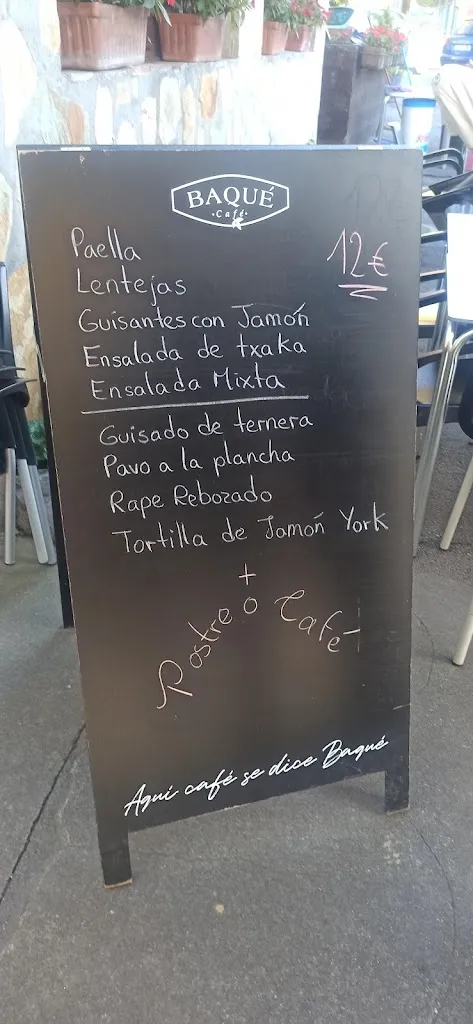 BAQUÉ
·Café·
Paella
12€
Lentejas
Guisantes con Jamón
Ensalada de txaka
Ensalada Mixta
Guisado de ternera
Pavo a la plancha
Rape Rebozado
Tortilla de Jamón York
+
Postre o Café
Aquí café se dice Baqué